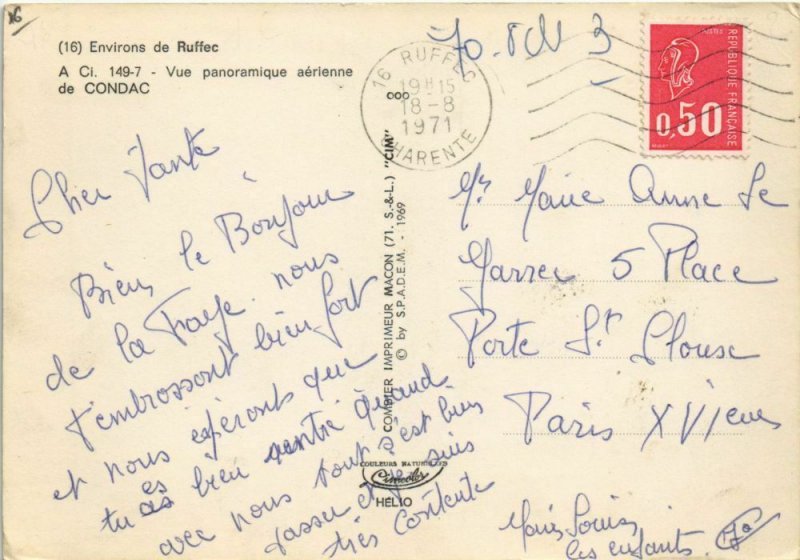 16
(16) Environs de Ruffec
A Ci. 149-7 - Vue panoramique aérienne
de CONDAC
16 RUFFEC
19H15
18-8
1971
CHARENTE
POSTES
RÉPUBLIQUE FRANÇAISE
0,50
COMBIER IMPRIMEUR MACON (71. S.-&-L.) "CIM"
© by S.P.A.D.E.M. - 1969
COULEURS NATURELLES
Cimcolor
HÉLIO
Cher
Bien le Bonjour
de la Faye. nous
t'embrossont bien fort
et nous espéront que
tu es bien rentré quand
avec nous tout s'est bien
passer et je suis
très contente
Marie Louise
les enfants
Mr Marie Anne Le
Garrec 5 Place
Porte St Clouse
Paris XVIeme